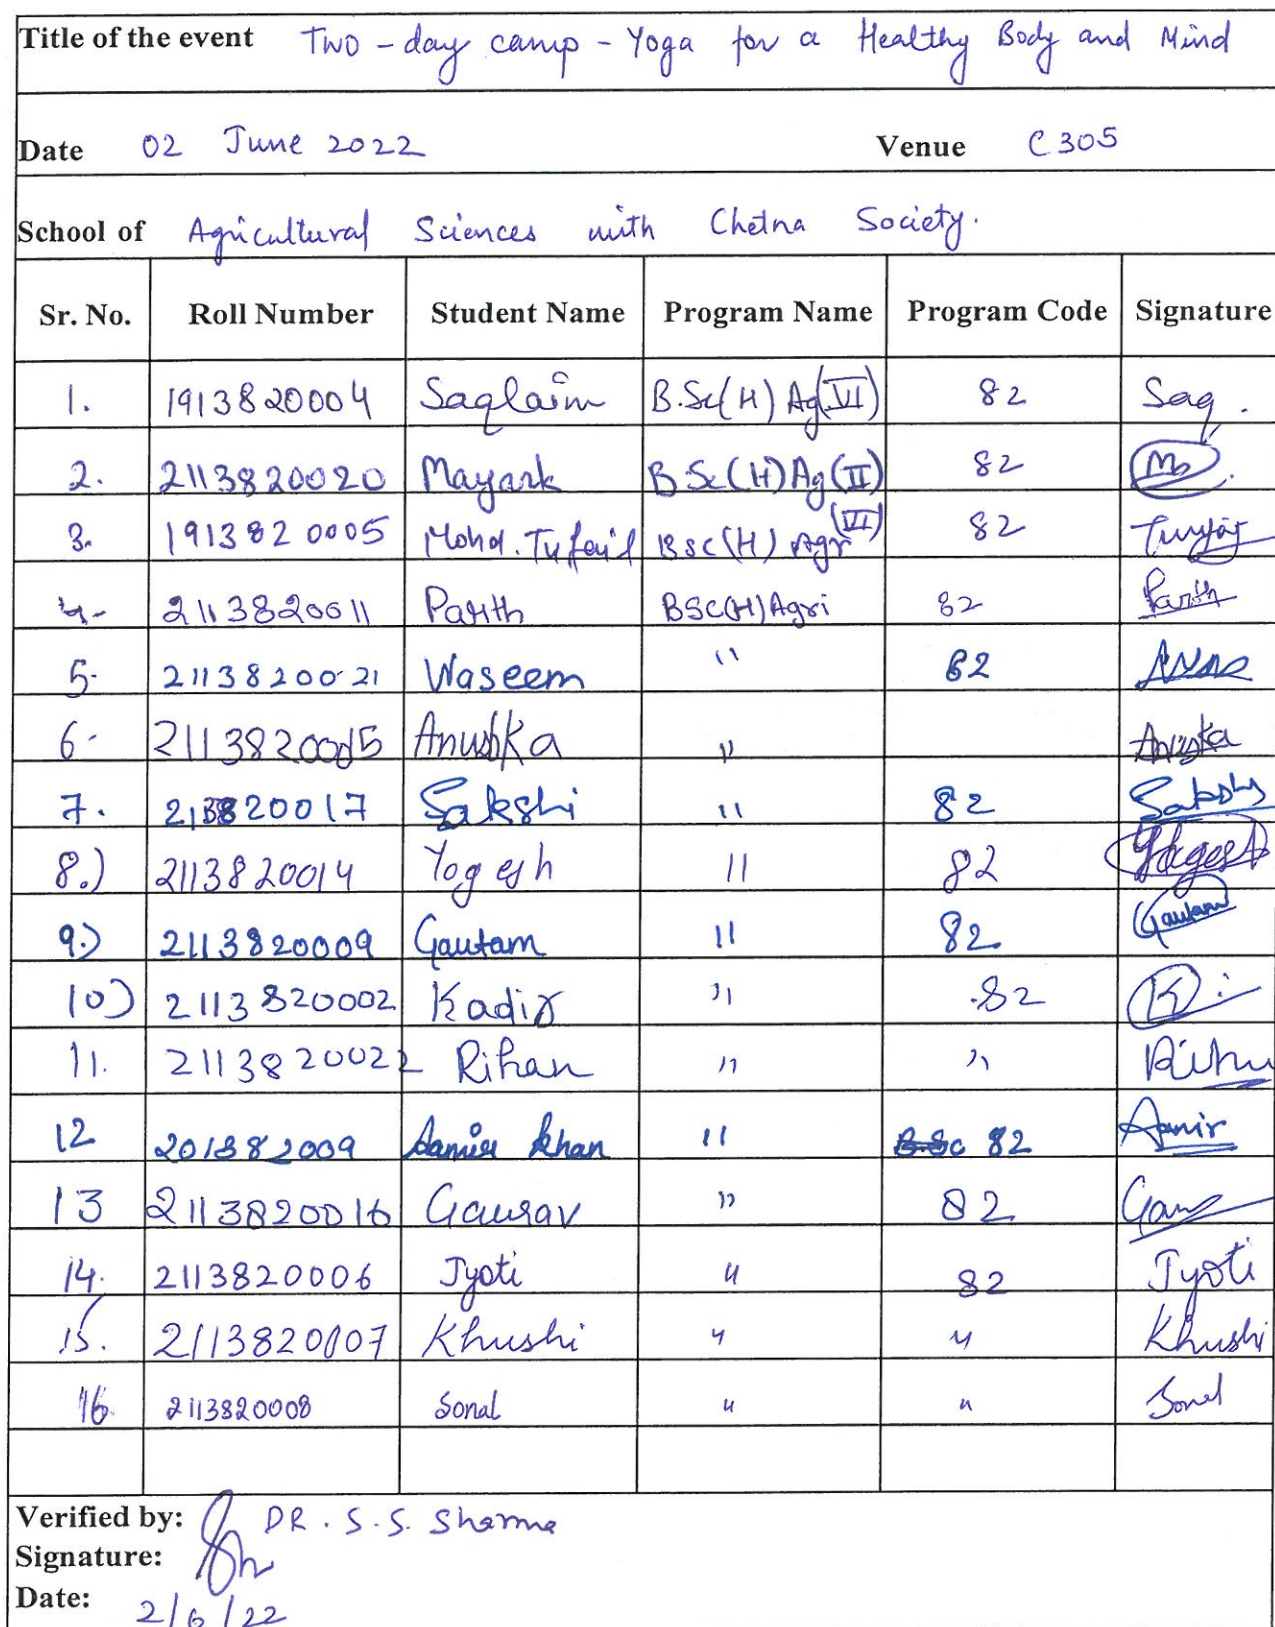 Title of the event Two-day camp - Yoga for a Healthy Body and Mind
Date 02 June 2022 Venue C 305
School of Agricultural Sciences with Chetna Society.
Sr. No. Roll Number Student Name Program Name Program Code Signature
1. 1913820004 Saqlaim B.Sc(H) Ag(VI) 82 Saq.
2. 2113820020 Mayank B.Sc(H) Ag(II) 82
3. 1913820005 Mohd. Tufail BSC(H) Agri (VI) 82
4- 2113820011 Parth BSC(H) Agri 82 Parth
5- 2113820021 Waseem " 82
6- 2113820015 Anushka " Anuska
7. 213820017 Sakshi " 82 Sakshi
8.) 2113820014 Yogesh " 82 Yogesh
9.) 2113820009 Gautam " 82 Gautam
10) 2113820002 Kadir " .82 K
11. 2113820022 Rihan " "
12 201382009 Aamir Khan " 82 Aamir
13 2113820016 Gaurav " 82
14. 2113820006 Jyoti " 82 Jyoti
15. 2113820007 Khushi " " Khushi
16. 2113820008 Sonal " " Sonal
Verified by: DR. S.S. Sharma
Signature:
Date: 2/6/22